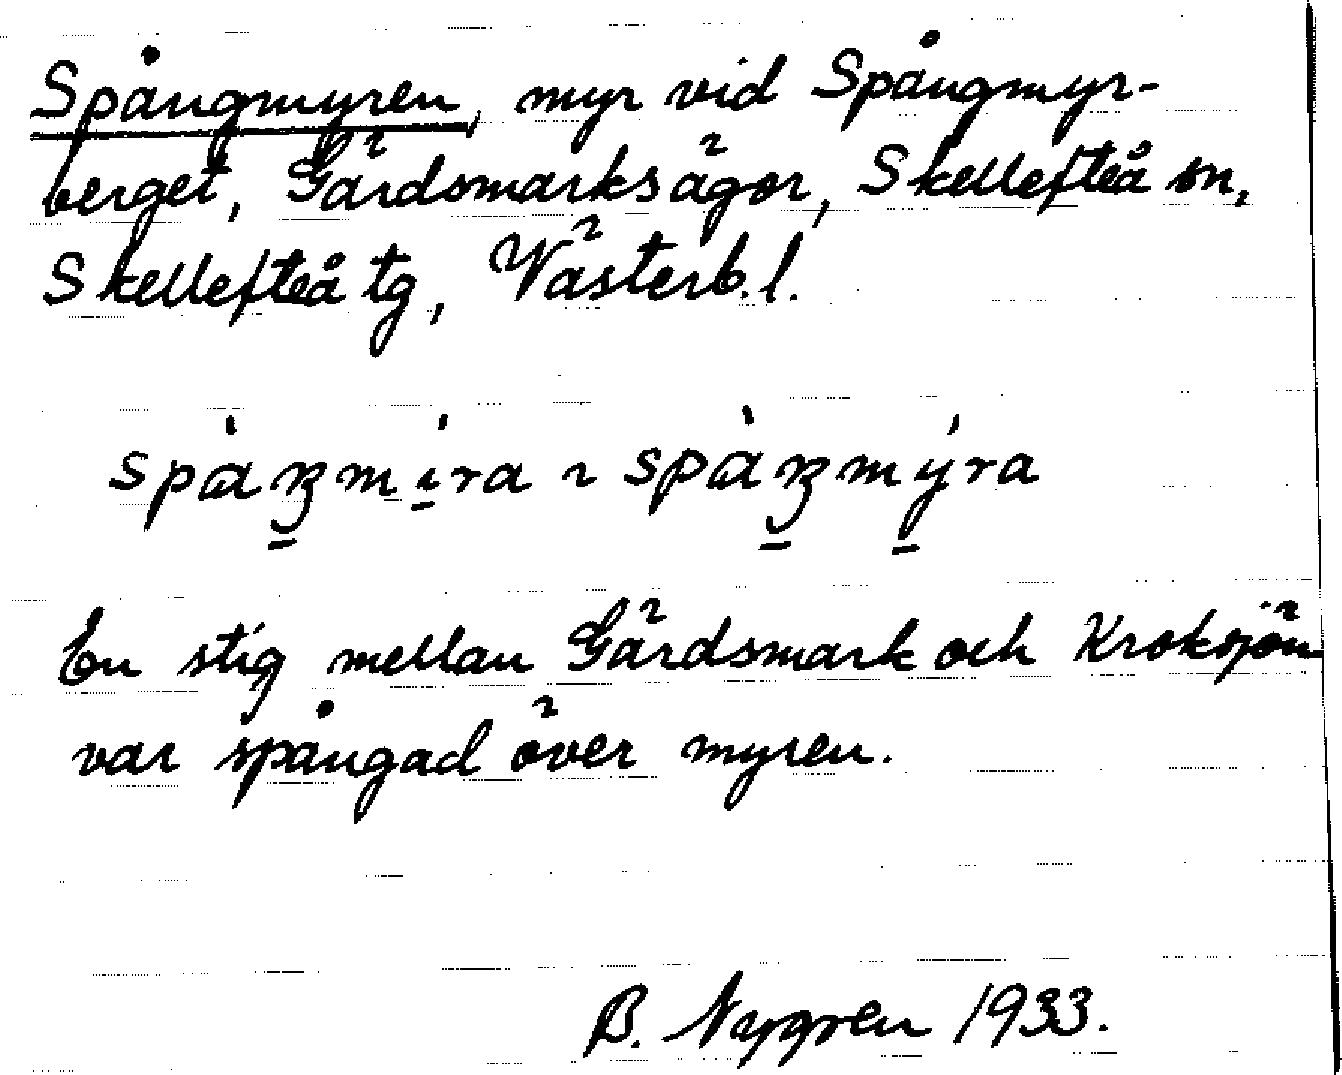 Spångmyren, myr vid Spångmyr-
berget, Gärdsmarks ägor, Skellefteå sn,
Skellefteå tg, Västerb. l.
En stig mellan Gärdsmark och Kroksjön
var spångad över myren.
B. Nygren 1933.